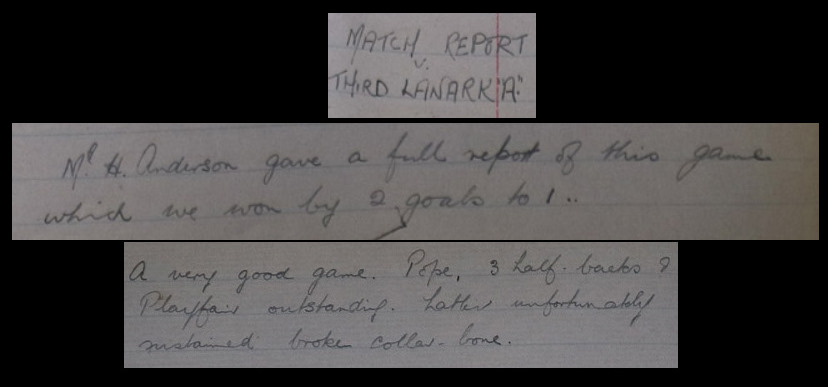 MATCH REPORT
v.
THIRD LANARK "A."
Mr H. Anderson gave a full report of this game
which we won by 2 goals to 1..
A very good game. Pope, 3 half-backs &
Playfair outstanding. Latter unfortunately
sustained broken collar-bone.